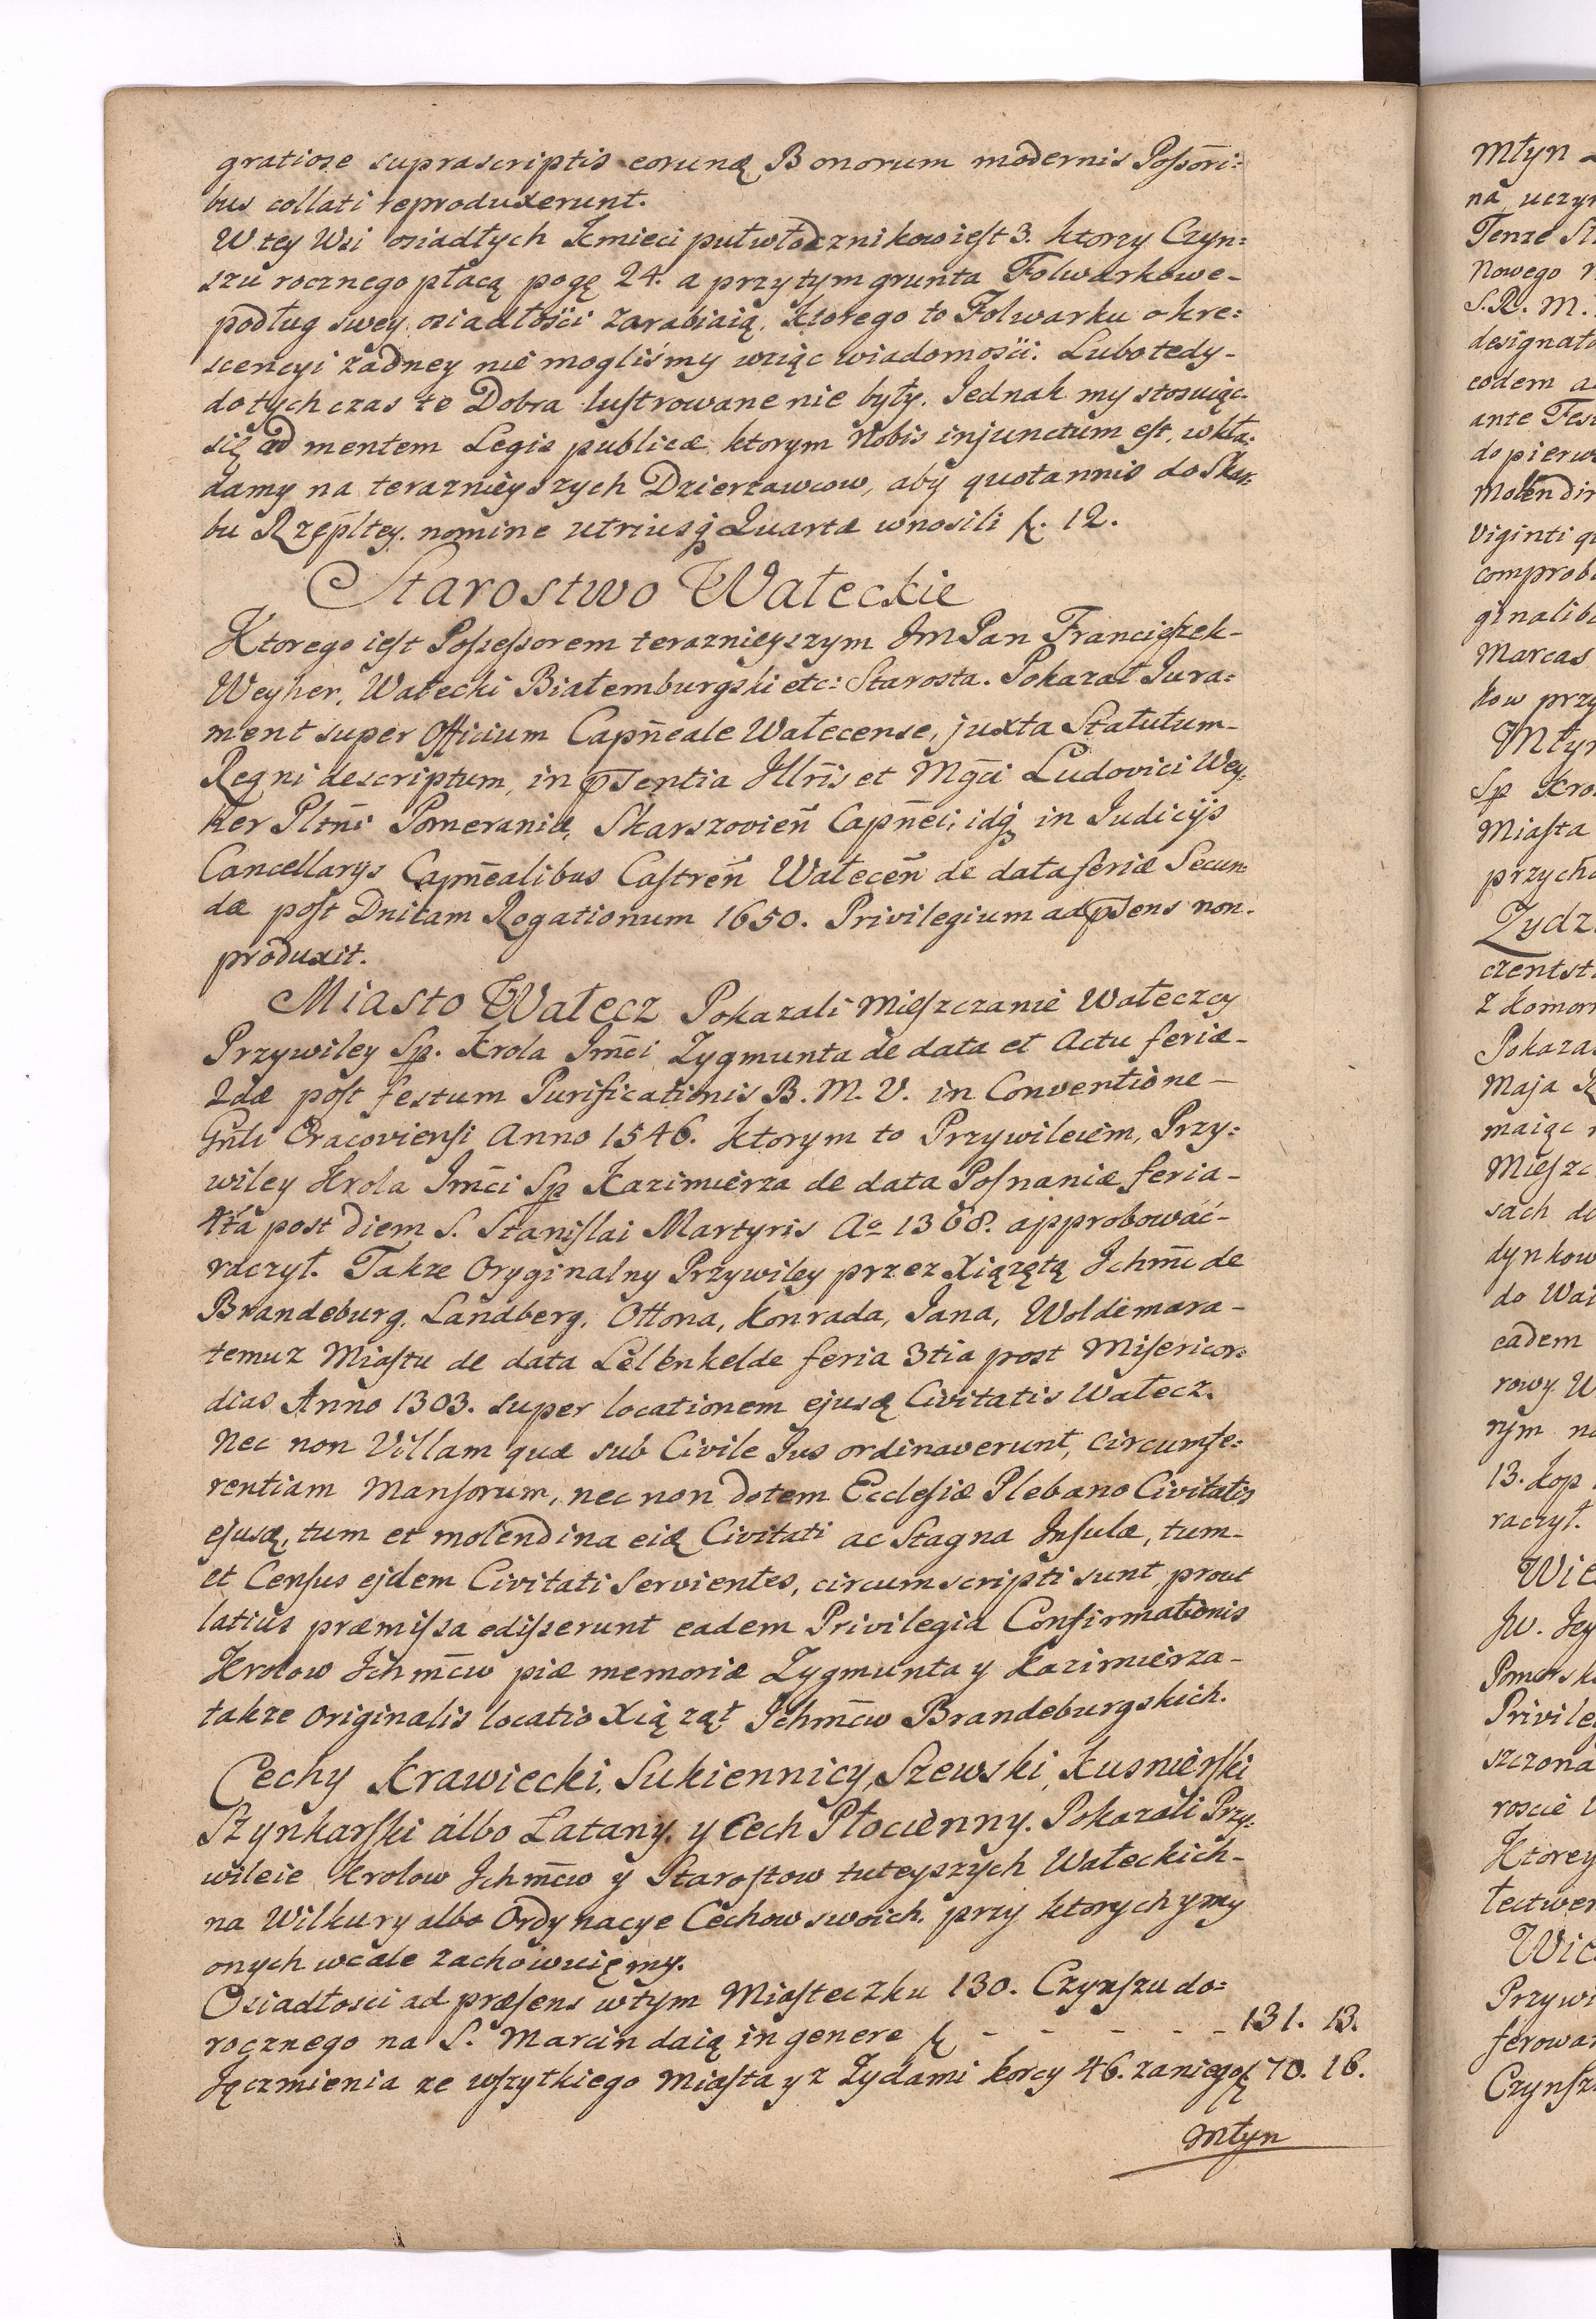 gratiose suprascriptis eorundem Bonorum modernis Possōri:
bus collati reproduxerunt.
W tey Wsi osiadłych Kmieci pułwłocznikow iest 3. ktorzy Czyn:
szu rocznego płacą po gę 24. a przy tym grunta Folwarkowe-
podług swey osiadłości zarabiaią. Ktorego to Folwarku o kre:
scencyi żadney nie mogliśmy wziąc wiadomości. Lubo tedy-
dotychczas te Dobra lustrowane nie były. Jednak my stosuiąc-
się ad mentem Legis publicæ ktorym Nobis injunctum est, wkła:
damy na teraznieyszych Dzierzawcow, aby quotannis do Skar:
bu Rzēpltey. nomine utriusq Quartæ wnosili f. 12.
Starostwo Wałeckie
Ktorego iest Possessorem teraznieyszym JmPan Franciszek-
Weyher, Wałecki Białemburgski etc: Starosta. Pokazał Jura:
ment super Officium Capn̄eale Wałecense, juxta Statutum-
Regni descriptum, in p̄sentia Jllr̄is et Mḡci Ludovici Wey:
her Pltn̄i Pomeraniæ, Skarszovien̄ Capn̄ei, idq in Judicijs
Cancellarijs Capn̄ealibus Castren̄ Wałecen̄ de data feriæ Secun:
dæ post Dnicam Rogationum 1650. Privilegium ad p̄sens non-
produxit.
Miasto Wałecz Pokazali Mieszczanie Wałeczcy
Przywiley Sp. Krola Jm̄ci Zygmunta de data et Actu feriæ-
2dæ post festum Purificationis B. M. V. in Conventione-
Gn̄li Cracoviensi Anno 1546. ktorym to Przywileiem, Przy:
wiley Krola Jm̄ci Sp Kazimierza de data Posnaniæ feria-
4ta post diem S. Stanislai Martyris Ao 1368. approbować-
raczył. Takze Oryginalny Przywiley przez Xiązętą Ichm̄c de
Brandeburg, Landberg, Ottona, Konrada, Jana, Woldemara-
temuz Miastu de data Lelenkelde feria 3tia post Misericor:
dias Anno 1303. super locationem ejusdem Civitatis Wałecz.
Nec non Villam quæ sub Civile Jus ordinaverunt, circumfe:
rentiam Mansorum, nec non dotem Ecclesiæ Plebano Civitatis
ejusdem, tum et molendina eidem Civitati ac Stagna Insulæ, tum-
et Census ejdem Civitati servientes, circumscripti sunt, prout
latius præmissa edisserunt eadem Privilegia Confirmationis
Krolow Ichm̄cw piæ memoriæ Zygmunta y Kazimierza-
takze Originalis locatio Xiąząt Ichm̄cw Brandeburgskich.
Cechy Krawiecki, Sukiennicy, Szewski, Kusnierski
Szynkarski albo Łatany. y Cech Płocienny. Pokazali Przy:
wileie Krolow Ichm̄cw y Starostow tuteyszych Wałeckich-
na Wilkury albo Ordynacye Cechow swoich. przy ktorych y my
onych wcale zachowuięmy.
Osiadłosci ad præsens w tym Miasteczku 130. Czynszu do:
rocznego na S. Marcin daią in genere f - - - - - 131. 13.
Jęczmienia ze wszytkiego Miasta y z Zydami korcy 46. zaniego f 70. 16.
Młyn
Młyn
na uczyn
Tenze
Nowego
S.R. M.
designat
eodem
ante Fes
do pierw
Molendin
Viginti
comprob
ginalib
Marcas
kow przy
Młyn
Sp Kro
Miasta
przych
Zydz
czentst
z komor
Pokaza
Maja
maiąc
Miesz
sach
dynkow
do Wa
eadem
rowy
nym na
13. kop
raczył.
Wie
Jw. Jey
Pomorsk
Privile
szczona
roscie
Ktorey
Wie
Przywi
ferowa
Czynsz